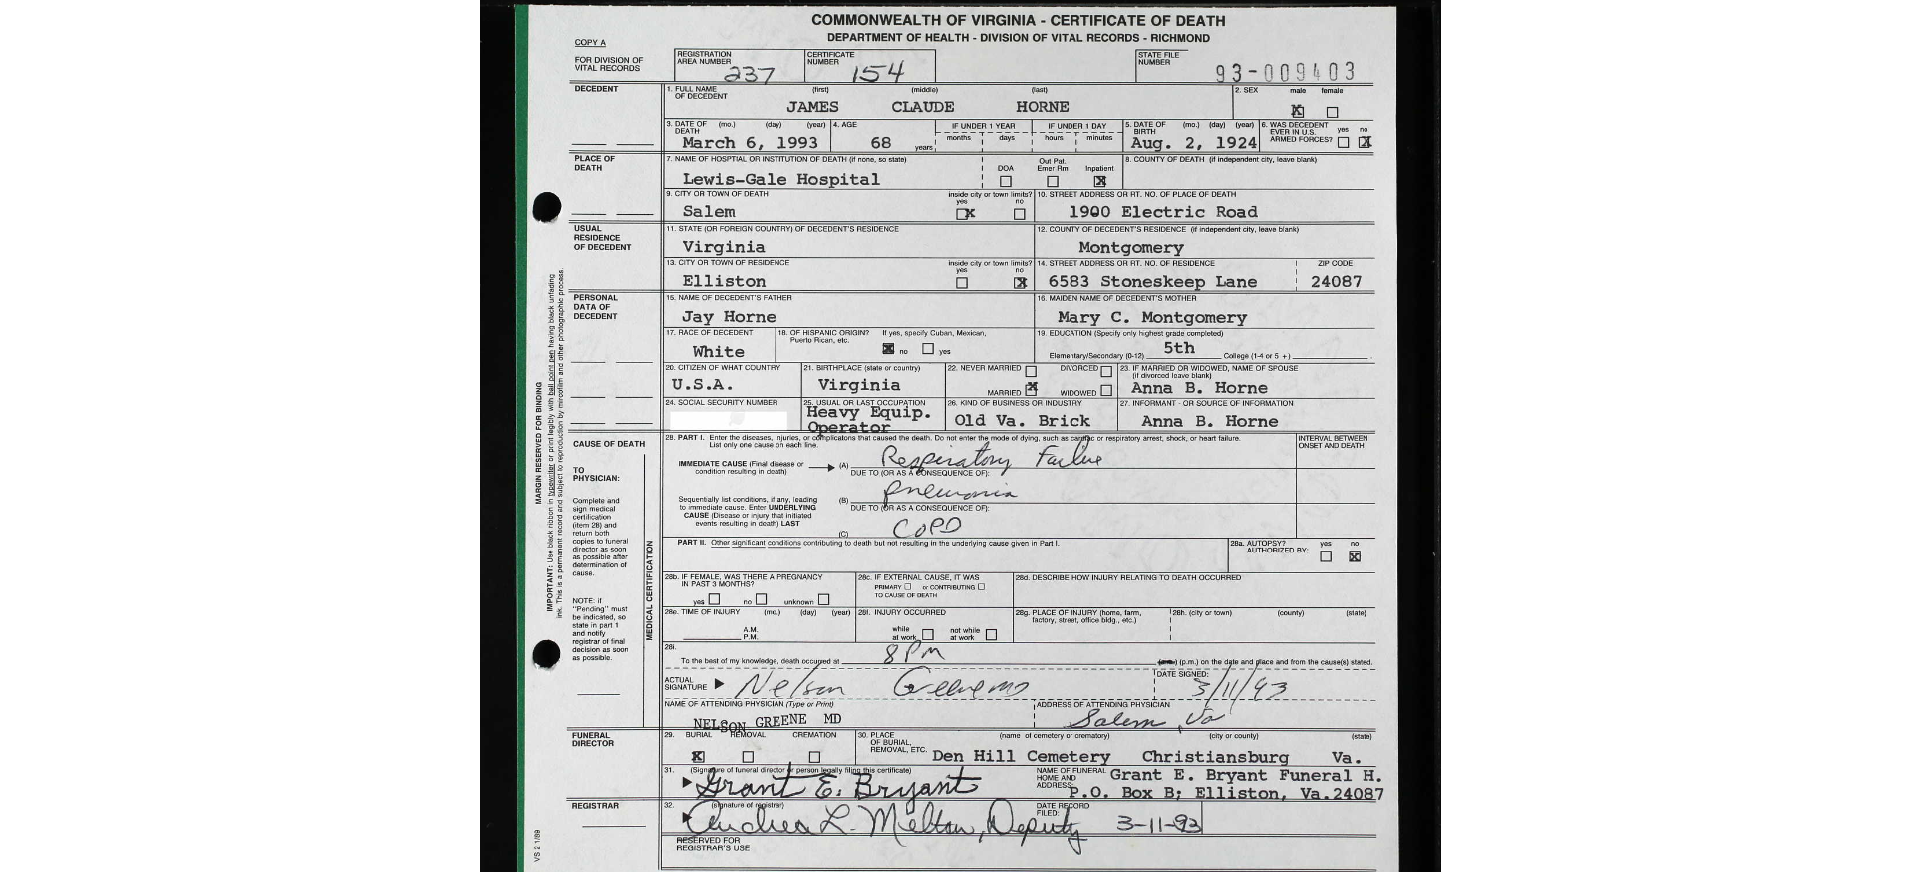 COMMONWEALTH OF VIRGINIA - CERTIFICATE OF DEATH
DEPARTMENT OF HEALTH - DIVISION OF VITAL RECORDS - RICHMOND
COPY A
FOR DIVISION OF VITAL RECORDS
REGISTRATION AREA NUMBER 237
CERTIFICATE NUMBER 154
STATE FILE NUMBER 93-009403
DECEDENT
1. FULL NAME OF DECEDENT (first) (middle) (last)
JAMES CLAUDE HORNE
2. SEX male female
X
3. DATE OF DEATH (mo.) (day) (year)
March 6, 1993
4. AGE 68 years
IF UNDER 1 YEAR months days
IF UNDER 1 DAY hours minutes
5. DATE OF BIRTH (mo.) (day) (year)
Aug. 2, 1924
6. WAS DECEDENT EVER IN U.S. ARMED FORCES? yes no
X
PLACE OF DEATH
7. NAME OF HOSPTIAL OR INSTITUTION OF DEATH (if none, so state)
Lewis-Gale Hospital
DOA Out Pat. Emer Rm Inpatient
X
8. COUNTY OF DEATH (if independent city, leave blank)
9. CITY OR TOWN OF DEATH
Salem
inside city or town limits? yes no
X
10. STREET ADDRESS OR RT. NO. OF PLACE OF DEATH
1900 Electric Road
USUAL RESIDENCE OF DECEDENT
11. STATE (OR FOREIGN COUNTRY) OF DECEDENT'S RESIDENCE
Virginia
12. COUNTY OF DECEDENT'S RESIDENCE (if independent city, leave blank)
Montgomery
13. CITY OR TOWN OF RESIDENCE
Elliston
inside city or town limits? yes no
X
14. STREET ADDRESS OR RT. NO. OF RESIDENCE
6583 Stoneskeep Lane
ZIP CODE
24087
PERSONAL DATA OF DECEDENT
15. NAME OF DECEDENT'S FATHER
Jay Horne
16. MAIDEN NAME OF DECEDENT'S MOTHER
Mary C. Montgomery
17. RACE OF DECEDENT
White
18. OF HISPANIC ORIGIN? If yes, specify Cuban, Mexican, Puerto Rican, etc.
X no yes
19. EDUCATION (Specify only highest grade completed)
Elementary/Secondary (0-12) 5th College (1-4 or 5 +)
20. CITIZEN OF WHAT COUNTRY
U.S.A.
21. BIRTHPLACE (state or country)
Virginia
22. NEVER MARRIED DIVORCED
MARRIED X WIDOWED
23. IF MARRIED OR WIDOWED, NAME OF SPOUSE (if divorced leave blank)
Anna B. Horne
24. SOCIAL SECURITY NUMBER
25. USUAL OR LAST OCCUPATION
Heavy Equip. Operator
26. KIND OF BUSINESS OR INDUSTRY
Old Va. Brick
27. INFORMANT - OR SOURCE OF INFORMATION
Anna B. Horne
CAUSE OF DEATH
28. PART I. Enter the diseases, injuries, or complicatons that caused the death. Do not enter the mode of dying, such as cardiac or respiratory arrest, shock, or heart failure.
List only one cause on each line.
INTERVAL BETWEEN ONSET AND DEATH
IMMEDIATE CAUSE (Final disease or condition resulting in death) (A) Respiratory Failure
DUE TO (OR AS A CONSEQUENCE OF):
Sequentially list conditions, if any, leading to immediate cause. Enter UNDERLYING CAUSE (Disease or injury that initiated events resulting in death) LAST
(B) pneumonia
DUE TO (OR AS A CONSEQUENCE OF):
(C) COPD
PART II. Other significant conditions contributing to death but not resulting in the underlying cause given in Part I.
28a. AUTOPSY? AUTHORIZED BY: yes no
X
TO PHYSICIAN:
Complete and sign medical certification (item 28) and return both copies to funeral director as soon as possible after determination of cause.
NOTE: if "Pending" must be indicated, so state in part 1 and notify registrar of final decision as soon as possible.
MEDICAL CERTIFICATION
28b. IF FEMALE, WAS THERE A PREGNANCY IN PAST 3 MONTHS?
yes no unknown
28c. IF EXTERNAL CAUSE, IT WAS
PRIMARY or CONTRIBUTING
TO CAUSE OF DEATH
28d. DESCRIBE HOW INJURY RELATING TO DEATH OCCURRED
28e. TIME OF INJURY (mo.) (day) (year)
A.M.
P.M.
28f. INJURY OCCURRED
while at work not while at work
28g. PLACE OF INJURY (home, farm, factory, street, office bldg., etc.)
28h. (city or town) (county) (state)
28i.
To the best of my knowledge, death occured at 8 PM (p.m.) on the date and place and from the cause(s) stated.
ACTUAL SIGNATURE Nelson Greene MD
DATE SIGNED: 3/11/93
NAME OF ATTENDING PHYSICIAN (Type or Print)
NELSON GREENE MD
ADDRESS OF ATTENDING PHYSICIAN
Salem, Va
FUNERAL DIRECTOR
29. BURIAL REMOVAL CREMATION
X
30. PLACE OF BURIAL, REMOVAL, ETC. (name of cemetery or crematory) (city or county) (state)
Den Hill Cemetery Christiansburg Va.
31. (Signature of funeral director or person legally filing this certificate)
Grant E. Bryant
NAME OF FUNERAL HOME AND ADDRESS: Grant E. Bryant Funeral H.
P.O. Box B; Elliston, Va.24087
REGISTRAR
32. (signature of registrar)
Andrea L. Melton, Deputy
DATE RECORD FILED: 3-11-93
RESERVED FOR REGISTRAR'S USE
VS 2 1/89
MARGIN RESERVED FOR BINDING
IMPORTANT: Use black ribbon in typewriter or print legibly with ball point pen having black unfading
ink. This is a permanent record and subject to reproduction by microfilm and other photographic process.